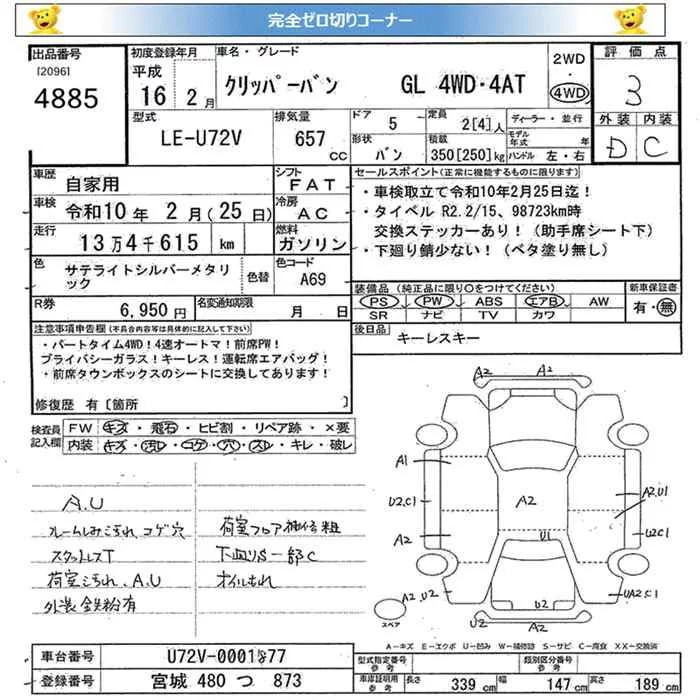 完全ゼロ切りコーナー
出品番号
[2096]
4885
初度登録年月
平成
16 年 2 月
車名・グレード
クリッパーバン GL 4WD・4AT
2WD
・
4WD
評価点
3
外装 内装
D C
型式
LE-U72V
排気量
657 cc
ドア 5
形状 バン
定員 2[4]人
積載 350[250]kg
ディーラー・並行
モデル年式 年
ハンドル 左・右
車歴 自家用
シフト FAT
車検 令和10年 2月(25日)
冷房 AC
走行 13万4千615 km
燃料 ガソリン
色 サテライトシルバーメタリック
色替
色コード A69
R券 6,950円
名変通知期限 月 日
セールスポイント(正常に機能するものに限ります)
・車検取立て令和10年2月25日迄!
・タイベル R2.2/15、98723km時
交換ステッカーあり!(助手席シート下)
・下廻り錆少ない!(ベタ塗り無し)
装備品(純正品に限り○をつけてください)
PS PW ABS エアB AW
SR ナビ TV カワ
新車保証書
有・無
後日品 キーレスキー
注意事項申告欄(不具合内容等は具体的に記入して下さい)
・パートタイム4WD!4速オートマ!前席PW!
プライバシーガラス!キーレス!運転席エアバッグ!
・前席タウンボックスのシートに交換してあります!
修復歴 有〔箇所 〕
検査員記入欄
FW キズ・飛石・ヒビ割・リペア跡・×要
内装 キズ・汚レ・コゲ・穴・スレ・キレ・破レ
A.U
フレームしみこぢれ、コゲ穴
スタットレスT
荷室こぢれ、A.U
外装鉄粉有
荷室フロア補修粗
下廻りS一部C
オイルもれ
A2
A2
A1
U2.C1
A2
A2
A2.U1
U1
U2C1
A2.U2
U2
UA2.C1
U2
A2
スペア
A-キズ E-エクボ U-凹み W-補修跡 S-サビ C-腐食 XX-交換済
車台番号 U72V-0001877
登録番号 宮城 480 つ 873
型式指定番号
参考
類別区分番号
参考
車庫証明用
参考
長さ 339 cm 幅 147 cm 高さ 189 cm